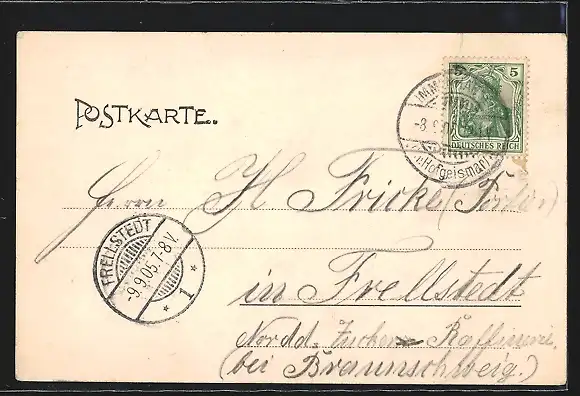 POSTKARTE.
5 5
DEUTSCHES REICH
IMM
-8.9.0
Hofgeismar)
Herrn H Fricke (Torten)
FRELLSTEDT
-9.9.05.7-8 V.
* 1 *
in Frellstedt
Nordd. Zucker Raffinerie
(bei Braunschweig.)